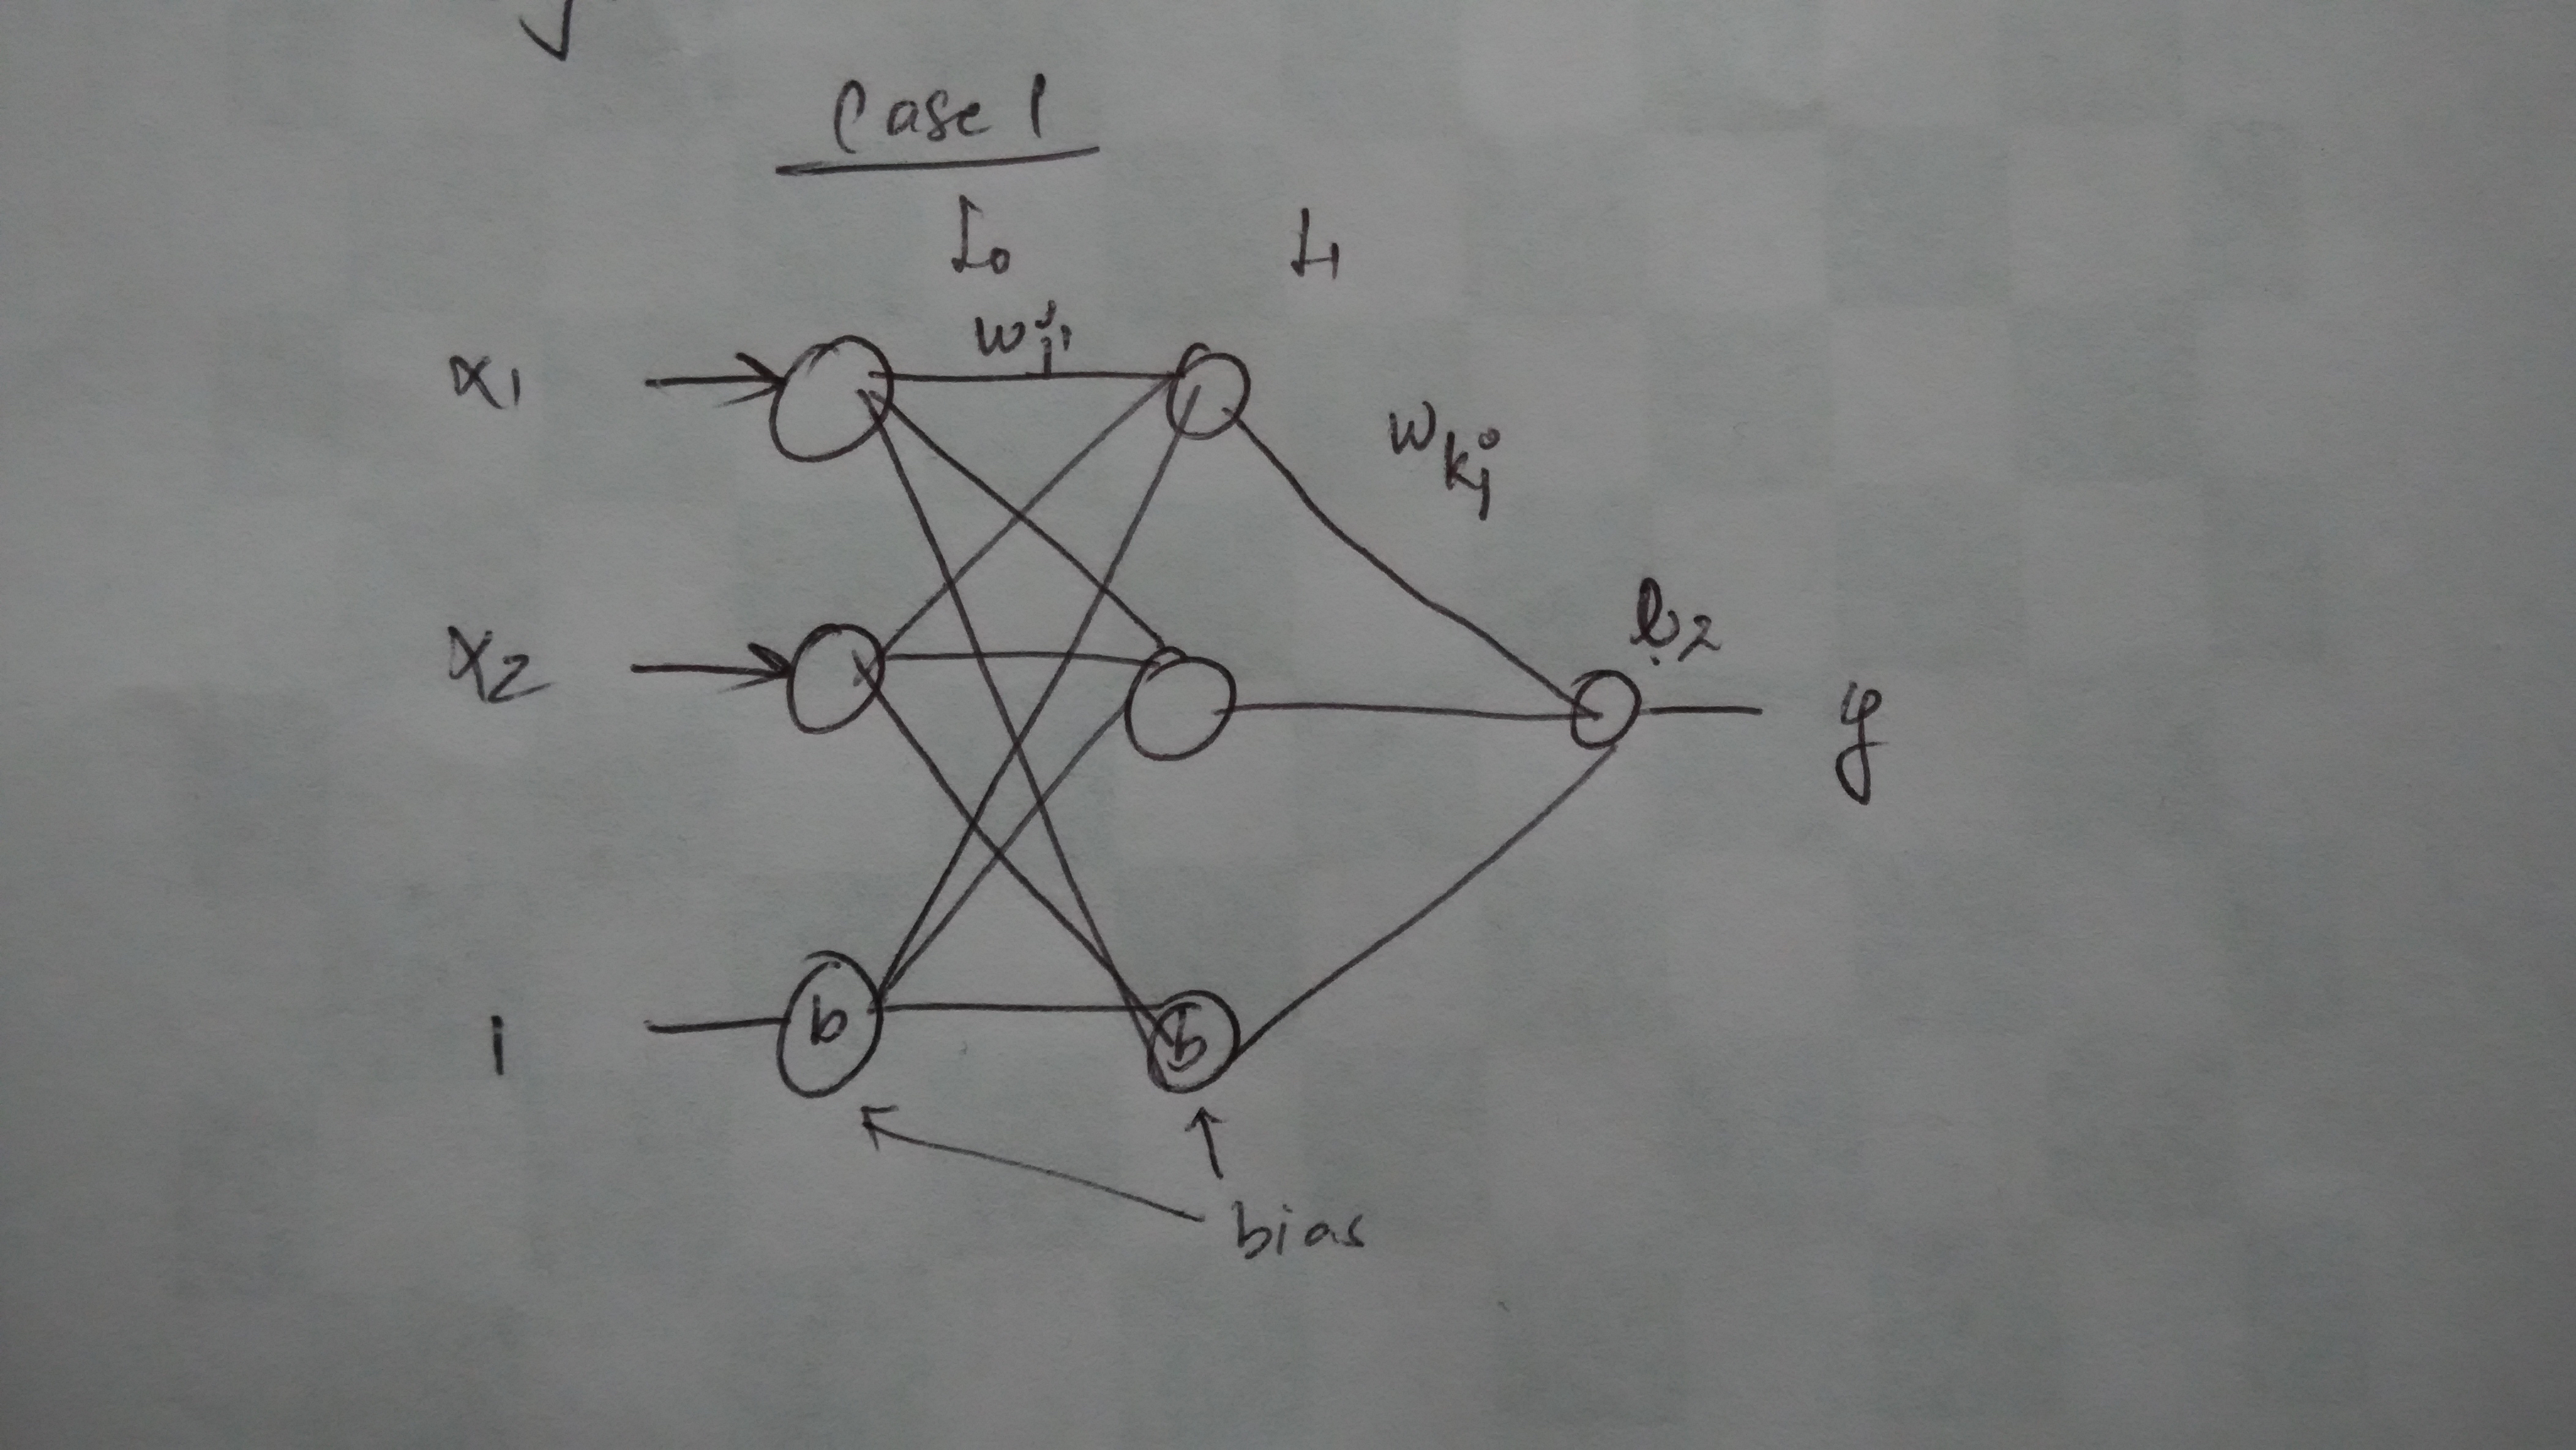 Case 1
L0 L1
wji
x1
wkj
L2
x2
y
1 b b
bias